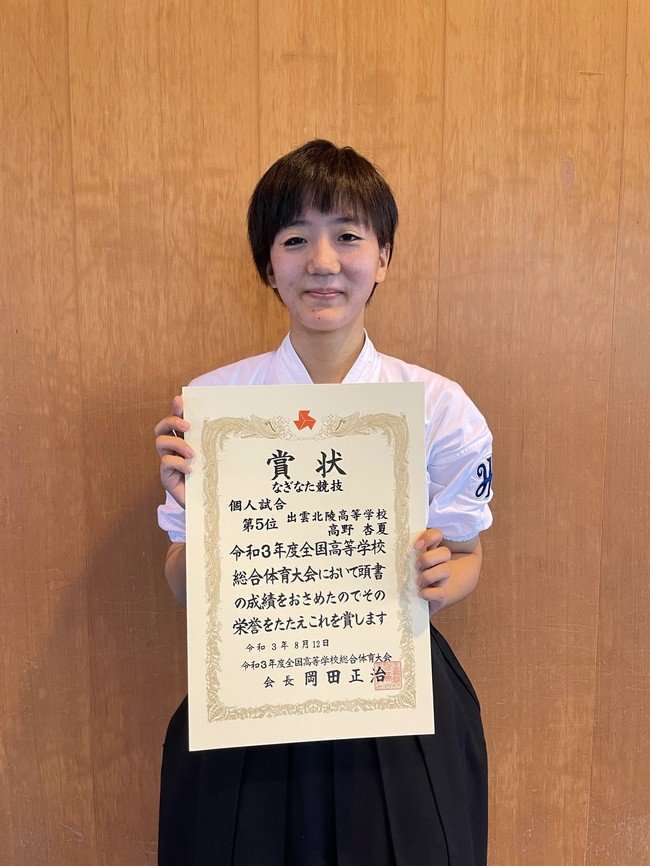 賞状
なぎなた競技
個人試合
第5位 出雲北陵高等学校
高野 杏夏
令和3年度全国高等学校
総合体育大会において頭書
の成績をおさめたのでその
栄誉をたたえこれを賞します
令和 3年 8月12日
令和3年度全国高等学校総合体育大会
会長 岡田正治
H